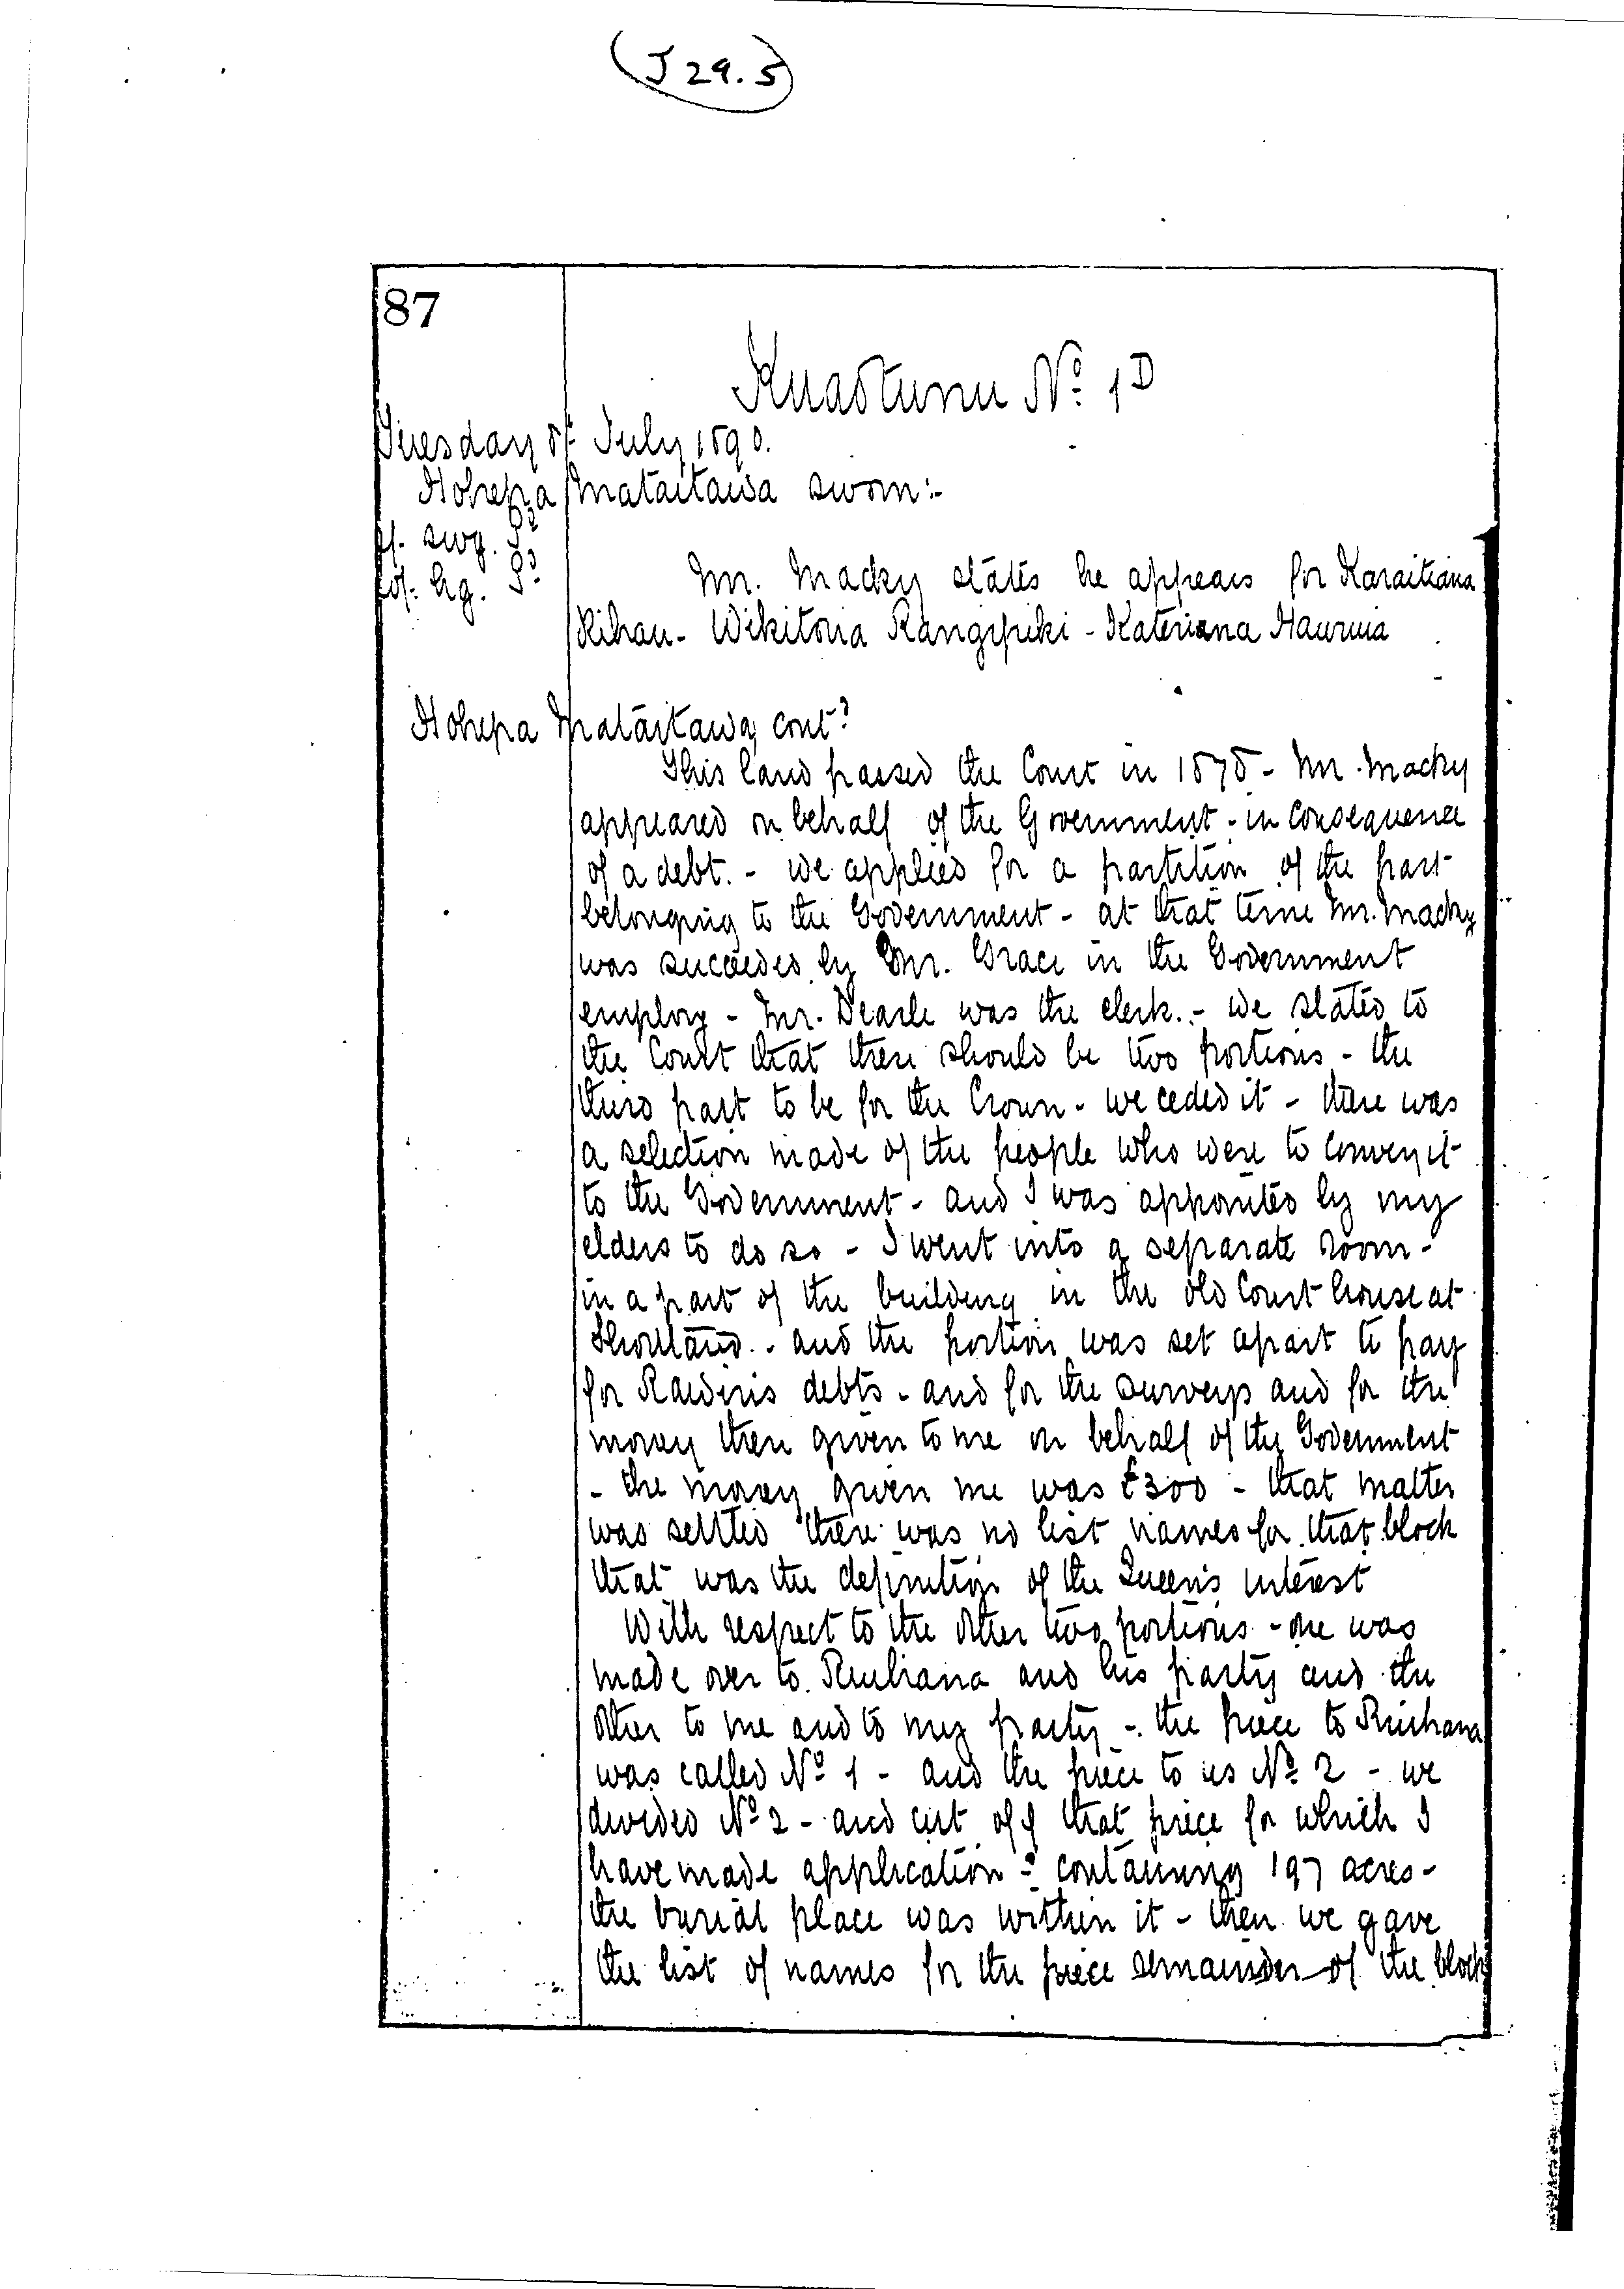 (J 29.5)
87
Kuaotunu No. 1D
Tuesday 8th July, 1890.
Hohepa Mataitawa sworn:-
Mr. Macky states he appears for Karaitiana
Kihau - Wikitoria Rangipiki - Kateriana Hauruia
Hohepa Mataitawa, contd
This land passed the Court in 1878 - Mr. Macky
appeared on behalf of the Government - in consequence
of a debt. - we applied for a partition of the part
belonging to the Government - at that time Mr. Macky
was succeeded by Mr. Grace in the Government
employ - Mr. Dearle was the clerk. - we stated to
the Court that there should be two portions - the
third part to be for the Crown - we ceded it - there was
a selection made of the people who were to convey it
to the Government - and I was appointed by my
elders to do so - I went into a separate room -
in a part of the building in the old Court house at
Shortland - and the portion was set apart to pay
for Rawiri's debts - and for the surveys and for the
money then given to me on behalf of the Government
- the money given me was £300 - that matter
was settled there was no list names for that block
that was the definition of the Queen's interest
With respect to the other two portions - one was
made over to Reuhana and his party and the
other to me and to my party - the piece to Reuhana
was called No. 1 - and the piece to us No. 2 - we
divided No. 2 - and cut off that piece for which I
have made application - containing 197 acres -
the burial place was within it - then we gave
the list of names for the piece remainder of the block